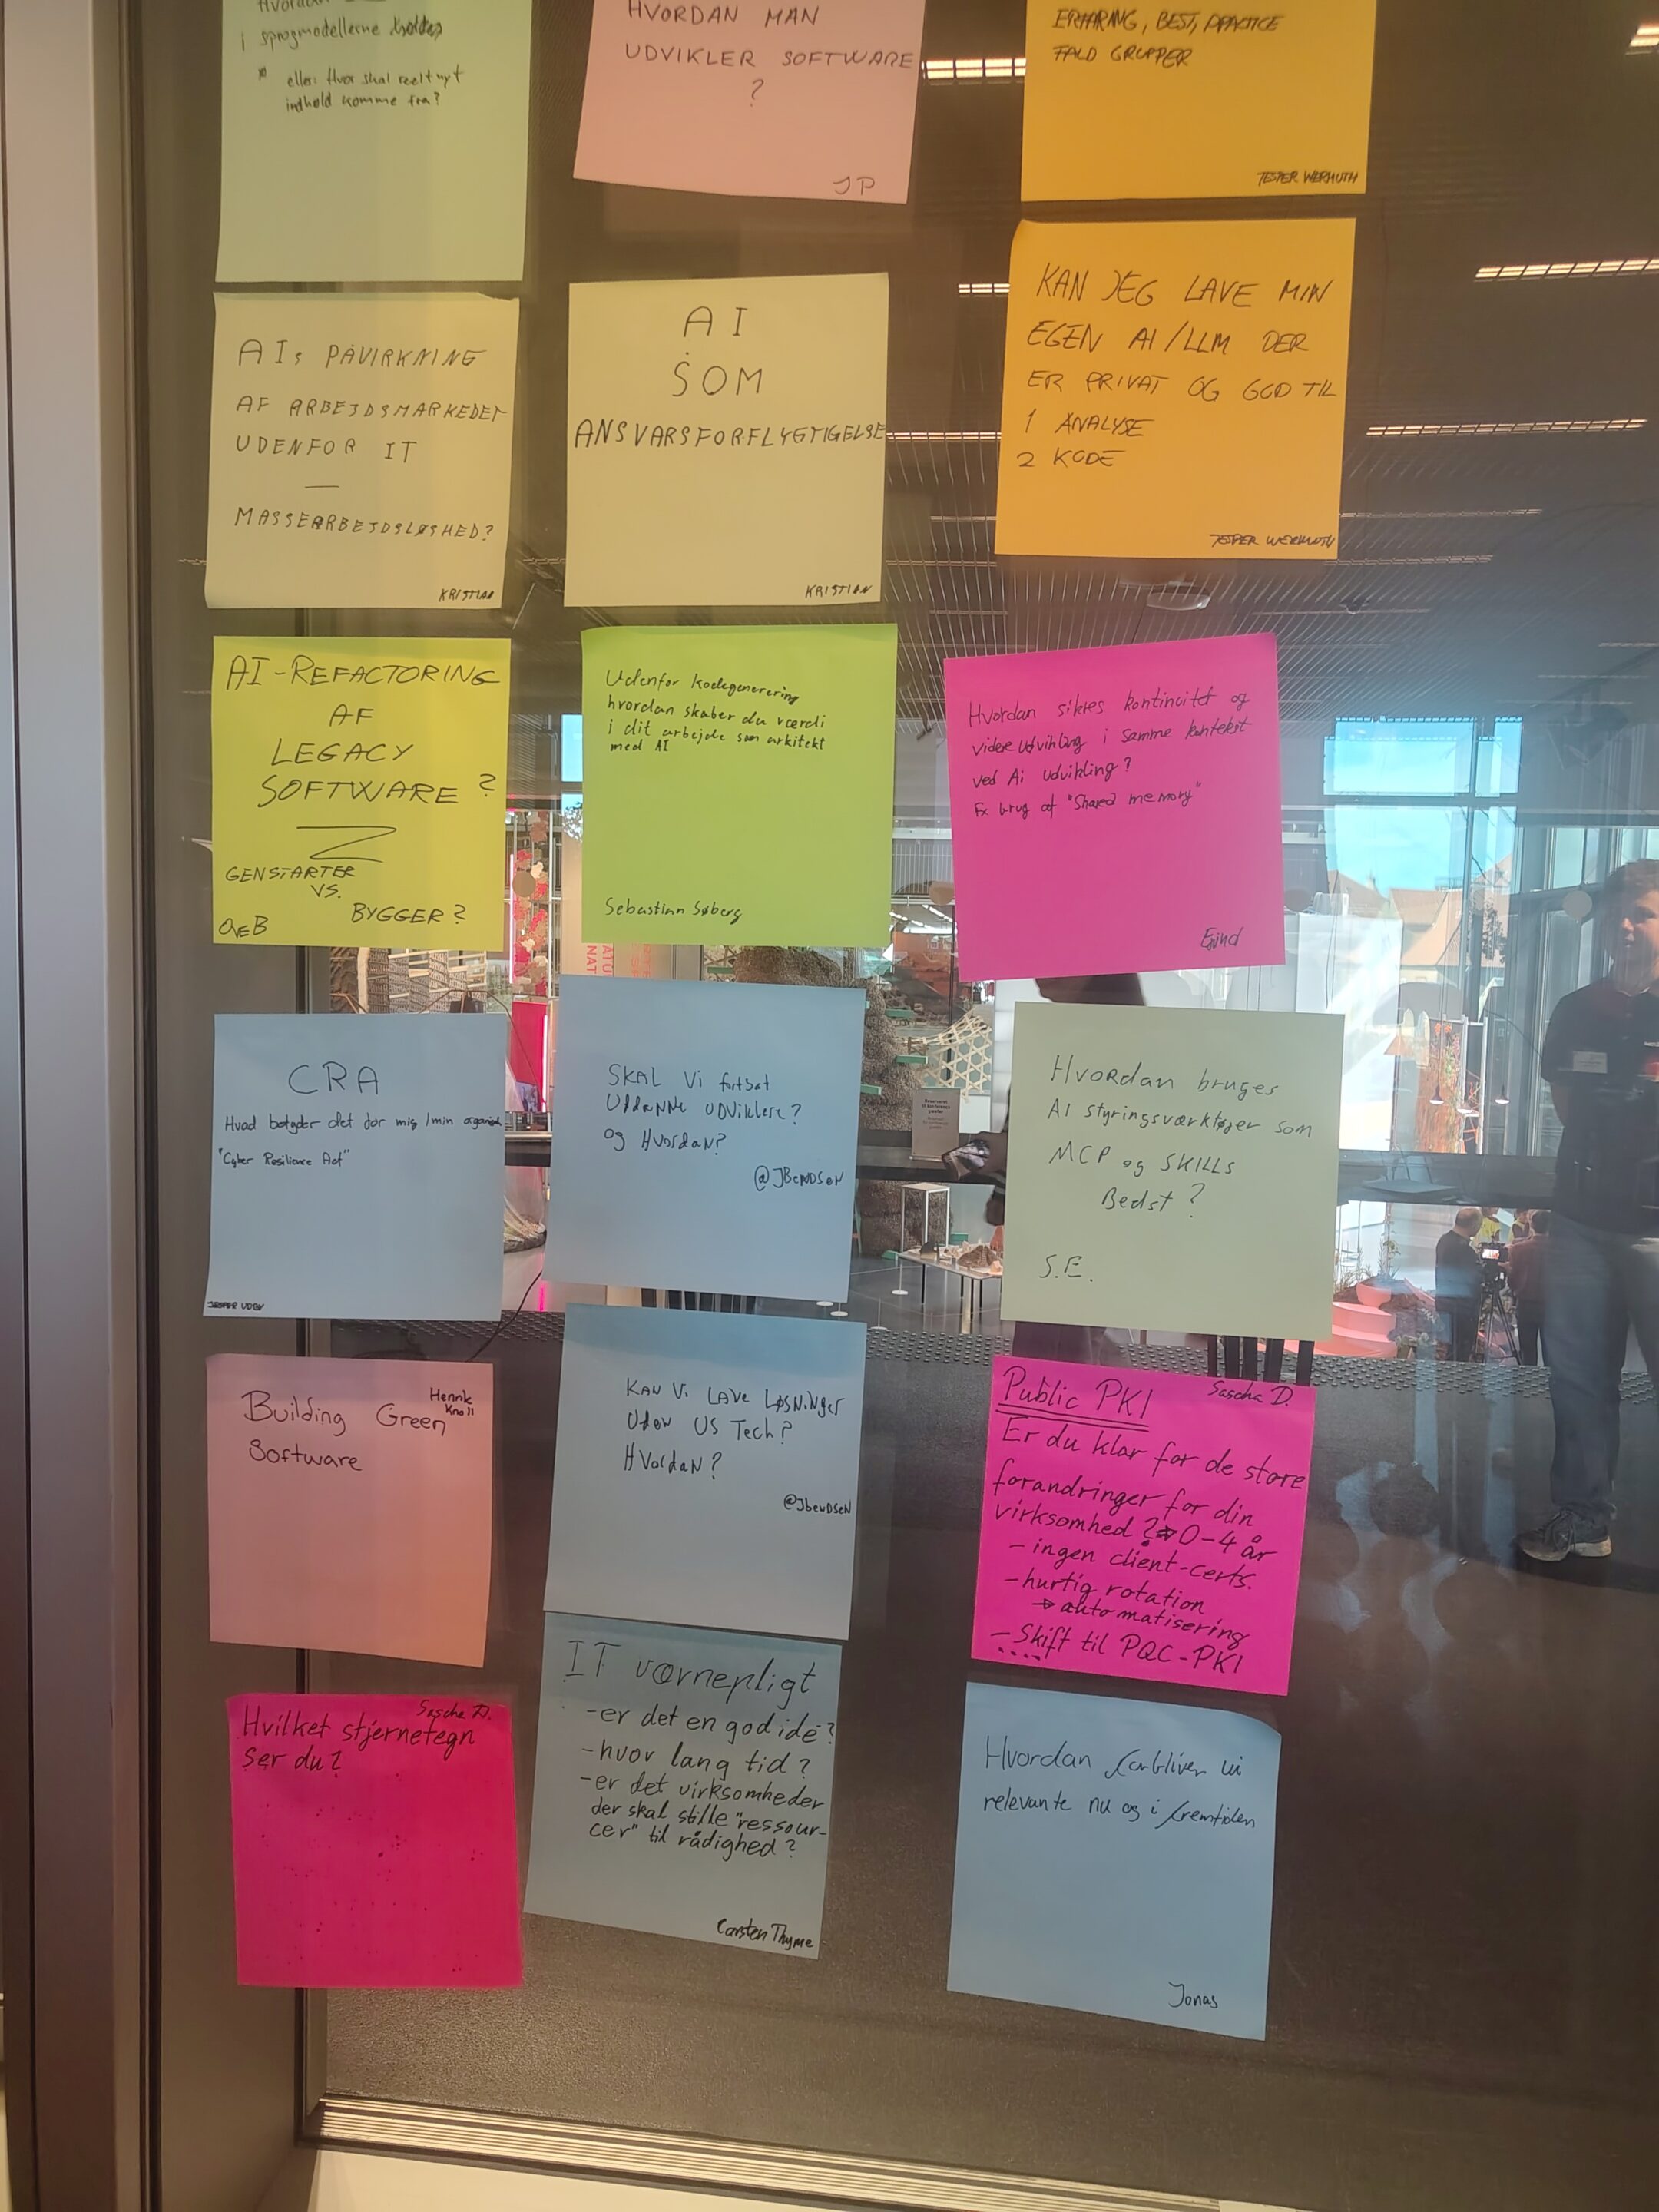 i sprogmodellerne
eller: Hvor skal reelt nyt
indhold komme fra?
HVORDAN MAN
UDVIKLER SOFTWARE
?
JP
ERFARING, BEST, PRACTICE
FALD GRUPPER
JESPER WERMUTH
AIs PÅVIRKNING
AF ARBEJDSMARKEDET
UDENFOR IT
—
MASSEARBEJDSLØSHED?
KRISTIAN
AI
SOM
ANSVARSFORFLYGTIGELSE
KRISTIAN
KAN JEG LAVE MIN
EGEN AI/LLM DER
ER PRIVAT OG GOD TIL
1 ANALYSE
2 KODE
JESPER WERMUTH
AI-REFACTORING
AF
LEGACY
SOFTWARE?
GENSTARTER
VS.
BYGGER?
OVEB
Udenfor kodegenerering
hvordan skaber du værdi
i dit arbejde som arkitekt
med AI
Sebastian Søberg
Hvordan sikres kontinuitet og
videreudvikling i samme kontekst
ved Ai udvikling?
Fx brug af "Shared memory"
CRA
Hvad betyder det for mig/min
"Cyber Resilience Act"
JESPER UDBY
SKAL Vi fortsat
UddaNNe UDViklere?
og HvordaN?
@JBeNDSeN
Hvordan bruges
AI styringsværktøjer som
MCP og SKILLS
Bedst?
S.E.
Building Green
Software
Henrik
Knoll
KaN Vi Lave LøsNiNger
UdeN US Tech?
HVordaN?
@JbeNDSeN
Public PKI
Sascha D.
Er du klar for de store
forandringer for din
virksomhed? ⇒ 0-4 år
- ingen client-certs.
- hurtig rotation
⇒ automatisering
- Skift til PQC-PKI
....
Sascha D.
Hvilket stjernetegn
ser du?
IT værnepligt
- er det en god idé?
- hvor lang tid?
- er det virksomheder
der skal stille "ressour-
cer" til rådighed?
Carsten Thyme
Hvordan forbliver vi
relevante nu og i fremtiden
Jonas